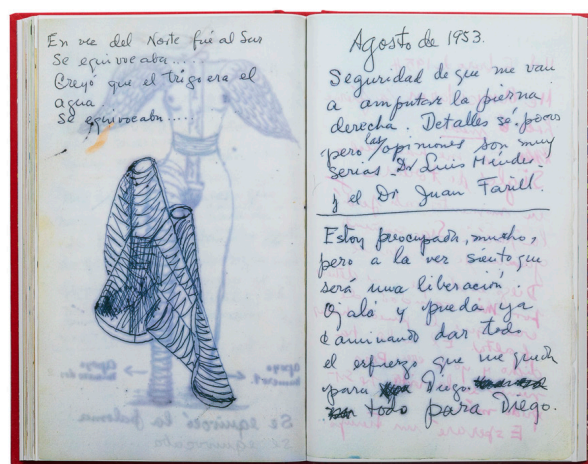 En vez del Norte fué al Sur
Se equivocaba.....
Creyó que el trigo era el
agua.
Se equivocaba.....
Agosto de 1953.
Seguridad de que me van
a amputar la pierna
derecha. Detalles sé pocos
pero las opiniones son muy
serias. Dr Luis Méndez
y el Dr Juan Farill.
Estoy preocupada, mucho,
pero a la vez siento que
será una liberación.
Ojalá y pueda ya
caminando dar todo
el esfuerzo que me queda
para Diego.
todo para Diego.